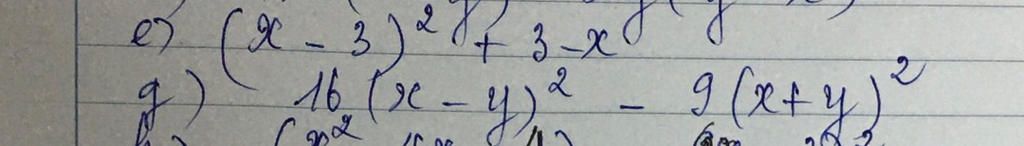 e) (x - 3)² + 3 - x
g) 16(x - y)² - 9(x + y)²